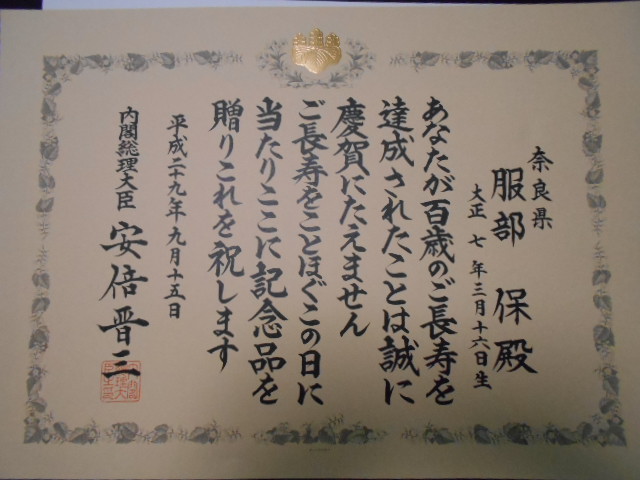 奈良県
服部 保殿
大正 七 年三月十六日生
あなたが百歳のご長寿を
達成されたことは誠に
慶賀にたえません
ご長寿をことほぐこの日に
当たりここに記念品を
贈りこれを祝します
平成二十九年九月十五日
内閣総理大臣 安倍晋三